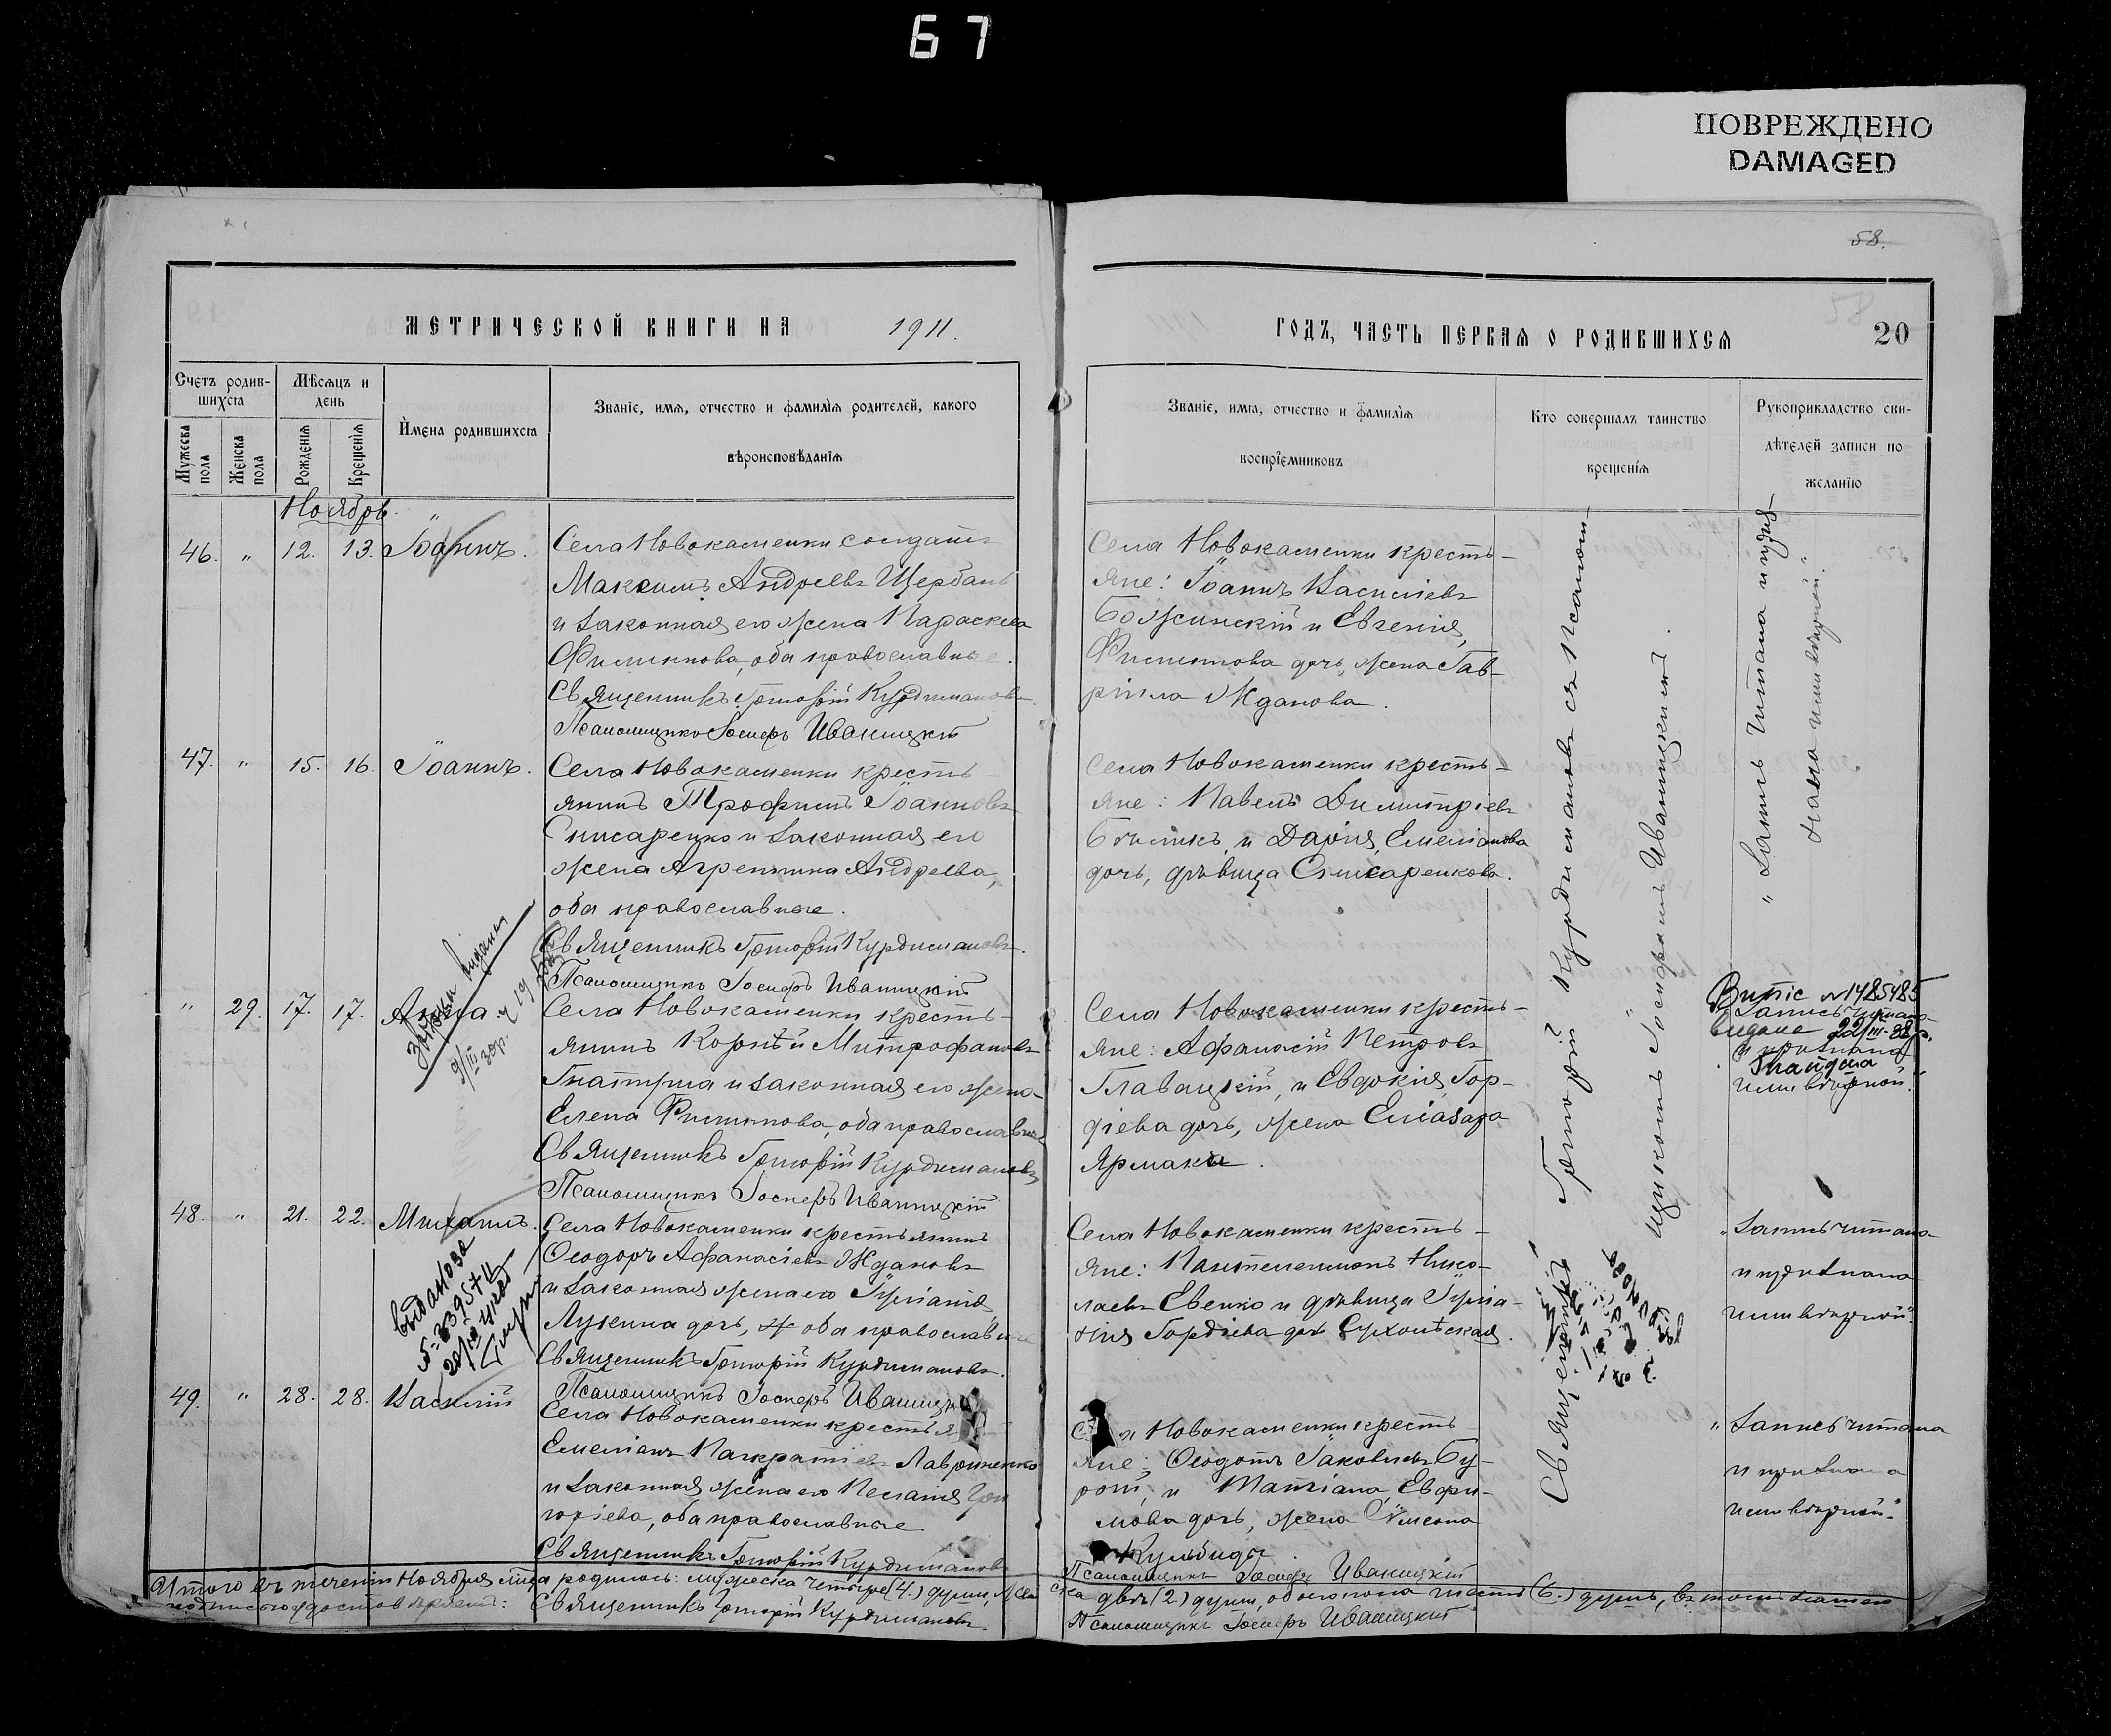 67
ПОВРЕЖДЕНО
DAMAGED
58.
МЕТРИЧЕСКОЙ КНИГИ НА 1911.
ГОДЪ, ЧАСТЬ ПЕРВАЯ О РОДИВШИХСЯ
20
Счетъ родив-
шихся
Мужеска пола
Женска пола
Мѣсяцъ и
день
Рожденія
Крещенія
Имена родившихся
Званіе, имя, отчество и фамилія родителей, какого
вѣроисповѣданія
Званіе, имя, отчество и фамилія
воспріемниковъ
Кто совершалъ таинство
крещенія
Рукоприкладство сви-
дѣтелей записи по
желанію
Ноябрь
46. " 12. 13. Іоаннъ.
Села Новокаменки солдатъ
Максимъ Андреевъ Щербань
и законная его жена Параскева
Филиппова, оба православные.
Священникъ Григорій Курдимановъ
Псаломщикъ Іосифъ Иваницкій
Села Новокаменки кресть-
яне: Іоаннъ Васильевъ
Божинскій и Евгенія
Филиппова дочь, жена Гав-
ріила Жданова.
47. " 15. 16. Іоаннъ.
Села Новокаменки кресть
янинъ Трофимъ Іоанновъ
Слисаренко и законная его
жена Агрепина Андреева,
оба православные.
Священникъ Григорій Курдимановъ.
Псаломщикъ Іосифъ Иваницкій
Села Новокаменки кресть-
яне: Павелъ Димитріевъ
и Дарія Емеліанова
дочь, дѣвица Слисаренкова.
" 29. 17. 17. Анна.
Села Новокаменки кресть-
янинъ Корнѣй Митрофановъ
и законная его жена
Елена Филиппова, оба православные
Священникъ Григорій Курдимановъ
Псаломщикъ Іосифъ Иваницкій
Села Новокаменки кресть-
яне: Афанасій Петровъ
Главацкій, и Евдокія Гор-
діева дочь, жена Еліазара
Ярмака.
Витяг №1485485
видано 22/III-38р.
Запись читана
и признана
исправной.
48. " 21. 22. Михаилъ.
Села Новокаменки крестьянинъ
Ѳеодоръ Афанасіевъ Ждановъ
и законная жена его Іуліанія
Лукина дочь, оба православные
Священникъ Григорій Курдимановъ.
Псаломщикъ Іосифъ Иваницкій
Села Новокаменки кресть-
яне: Пантелеимонъ Нико-
лаевъ Евенко и дѣвица Іуліа-
нія Гордіева дочь
"Запись читана
и признана
исправной."
49. " 28. 28. Василій
Села Новокаменки крестья
Емеліанъ Панкратіевъ Лавриненко
и законная жена его Пелагія Гри
горіева, оба православные.
Священникъ Григорій Курдимановъ
Псаломщикъ Іосифъ Иваницкій
Новокаменки кресть
яне: Ѳеодотъ Іаковлевъ Бу-
рой, и Татіана Евфи-
мова дочь, жена Сѵмеона
Кульбиды
"Запись читана
и признана
исправной."
Священникъ Григорій Курдимановъ съ псалом-
щикомъ Іосифомъ Иваницкимъ.
"Запись читана и приз-
нана исправной."
Итого въ теченіи Ноября м-ца родилось: мужеска четыре (4.) души, жен
ска двѣ (2.) души, обоего пола шесть (6.) душъ, въ томъ нашею
подписью удостовѣряемъ: Священникъ Григорій Курдимановъ
Псаломщикъ Іосифъ Иваницкій